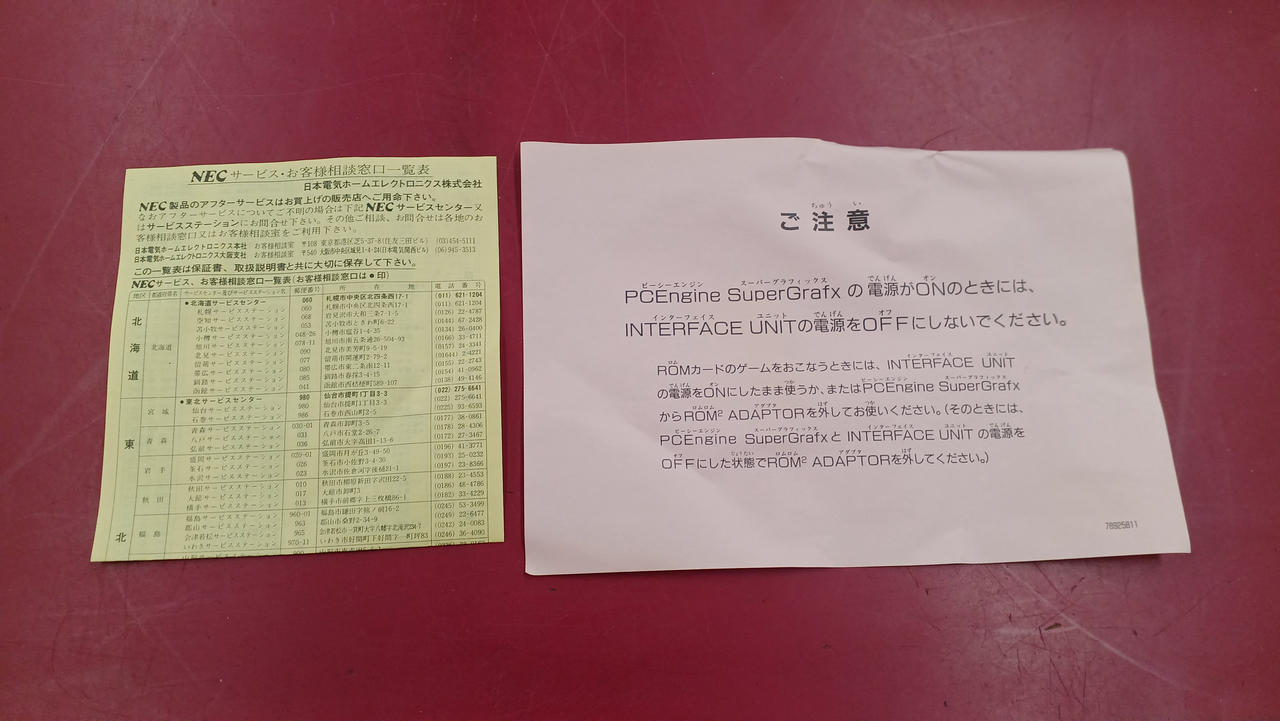 NEC サービス・お客様相談窓口一覧表
日本電気ホームエレクトロニクス株式会社
NEC 製品のアフターサービスはお買上げの販売店へご用命下さい。
なおアフターサービスについてご不明の場合は下記NECサービスセンター又
はサービスステーションにお問合せ下さい。その他ご相談、お問合せは各地のお
客様相談窓口又はお客様相談室をご利用下さい。
日本電気ホームエレクトロニクス本社 お客様相談室 〒108 東京都港区芝5-37-8(住友三田ビル) (03)454-5111
日本電気ホームエレクトロニクス大阪支社 お客様相談室 〒540 大阪市中央区城見1-4-24(日本電気関西ビル) (06)945-3513
この一覧表は保証書、取扱説明書と共に大切に保存して下さい。
NECサービス、お客様相談窓口一覧表(お客様相談窓口は●印)
地区 都道府県名 サービスセンター及びサービスステーション名 郵便番号 所在地 電話番号
北海道 北海道 ●北海道サービスセンター 060 札幌市中央区北四条西17-1 (011) 621-1204
札幌サービスステーション 060 札幌市中央区北四条西17-1 (011) 621-1204
空知サービスステーション 068 岩見沢市大和三条7-1-5 (0126) 22-4787
苫小牧サービスステーション 053 苫小牧市ときわ町6-22 (0144) 67-2428
小樽サービスステーション 048-26 小樽市塩谷1-4-35 (0134) 26-0400
旭川サービスステーション 078-11 旭川市南五条通26-504-93 (0166) 33-4711
北見サービスステーション 090 北見市美芳町9-5-19 (0157) 24-3341
留萌サービスステーション 077 留萌市開運町2-79-2 (01644) 2-4221
帯広サービスステーション 080 帯広市東二条南12-11 (0155) 22-2743
釧路サービスステーション 085 釧路市春採3-4-15 (0154) 41-0962
函館サービスステーション 041 函館市西桔梗町589-107 (0138) 49-4146
東北 宮城 ●東北サービスセンター 980 仙台市提町1丁目3-3 (022) 275-6641
仙台サービスステーション 980 仙台市提町1丁目3-3 (022) 275-6641
石巻サービスステーション 986 石巻市西山町2-5 (0225) 93-6593
青森 青森サービスステーション 030-01 青森市卸町3-5 (0177) 38-0861
八戸サービスステーション 031 八戸市石堂2-26-7 (0178) 28-4306
弘前サービスステーション 036 弘前市大字高田1-13-6 (0172) 27-3467
岩手 盛岡サービスステーション 020-01 盛岡市月が丘3-49-50 (0196) 41-3771
釜石サービスステーション 026 釜石市小佐野3-4-30 (0193) 25-0232
水沢サービスステーション 023 水沢市佐倉河字後樋21-1 (0197) 23-8366
秋田 秋田サービスステーション 010 秋田市柳原新田字沢田22-5 (0188) 23-4553
大館サービスステーション 017 大館市卸町3 (0186) 48-4786
横手サービスステーション 013 横手市前郷字上三枚橋86-1 (0182) 33-4229
福島 福島サービスステーション 960-01 福島市鎌田字熊ノ前16-2 (0245) 53-3499
郡山サービスステーション 963 郡山市桑野2-34-9 (0249) 22-6477
会津若松サービスステーション 965 会津若松市一箕町大字八幡字北滝沢234-7 (0242) 24-0083
いわきサービスステーション 970-11 いわき市好間町下好間字一町坪83 (0246) 36-4090
ちゅう い
ご注意
ピーシーエンジン スーパーグラフィックス でんげん オン
PCEngine SuperGrafx の電源がONのときには、
インターフェイス ユニット でんげん オフ
INTERFACE UNITの電源をOFFにしないでください。
ロム インターフェイス ユニット
ROMカードのゲームをおこなうときには、INTERFACE UNIT
でんげん オン つか ピーシーエンジン スーパーグラフィックス
の電源をONにしたまま使うか、またはPCEngine SuperGrafx
ロムロム アダプタ はず つか
からROM² ADAPTORを外してお使いください。(そのときには、
ピーシーエンジン スーパーグラフィックス インターフェイス ユニット でんげん
PCEngine SuperGrafxとINTERFACE UNITの電源を
オフ じょうたい ロムロム アダプタ はず
OFFにした状態でROM² ADAPTORを外してください。)
78925811